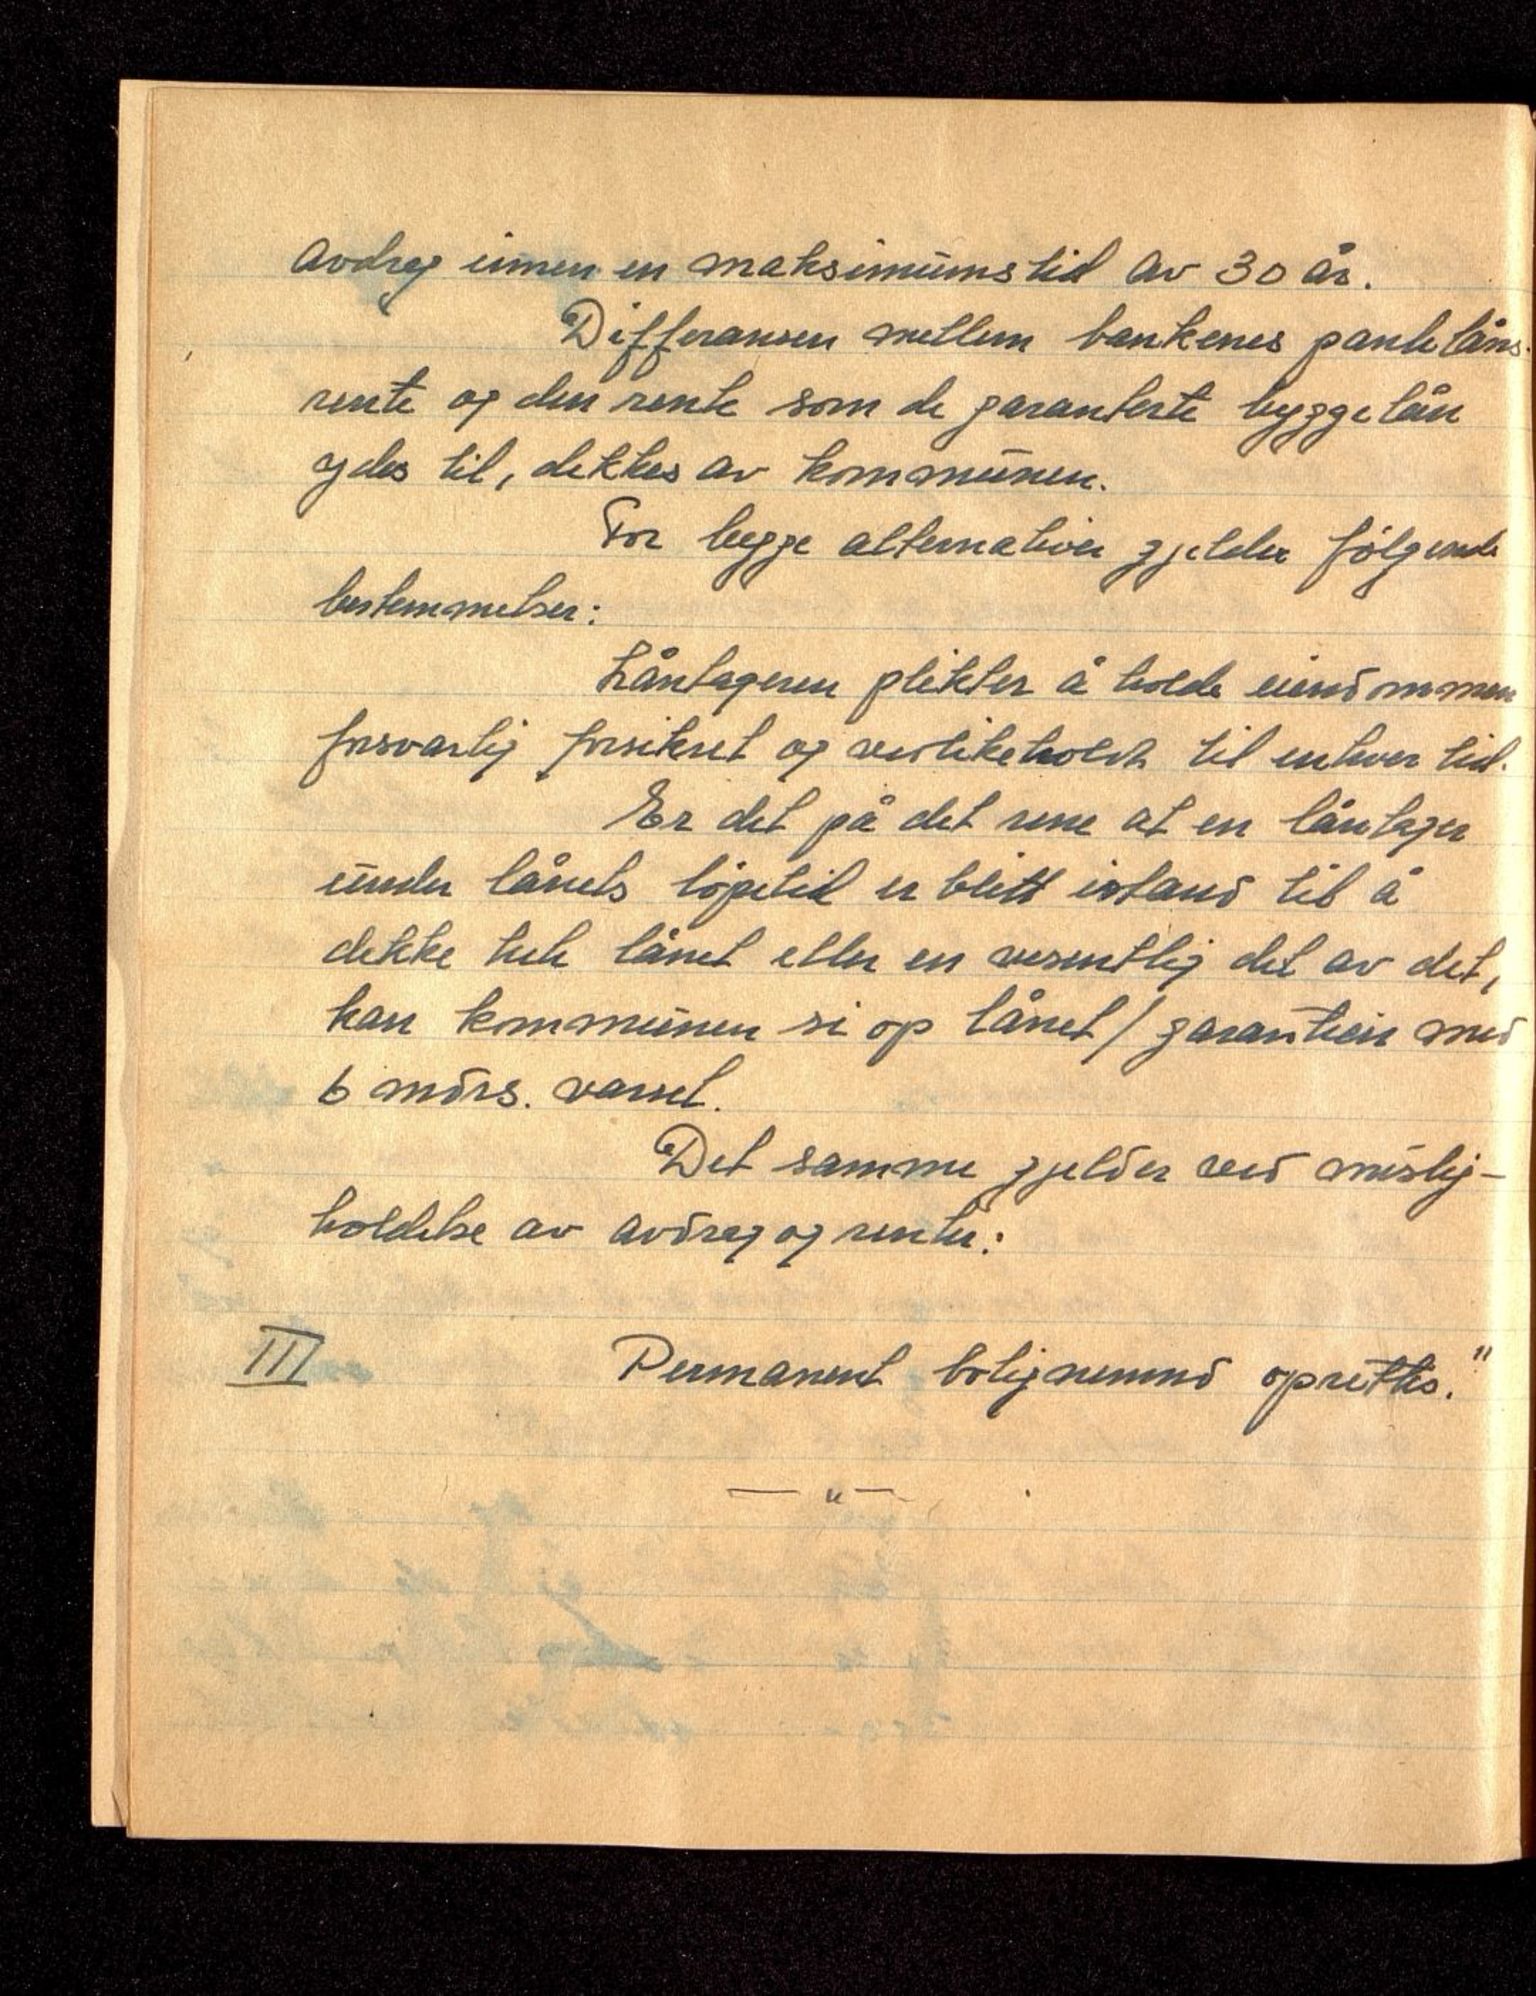 avdrag innen en maksimumstid av 30 år.
Differansen mellem bankenes pantelåns-
rente og den rente som de garanterte byggelån
ydes til, dekkes av kommunen.
For begge alternativer gjelder følgende
bestemmelser:
Låntageren plikter å holde eiendommen
forsvarlig forsikret og vedlikeholdt til enhver tid.
Er det på det rene at en låntager
under lånets løpetid er blitt istand til å
dekke hele lånet eller en vesentlig del av det,
kan kommunen si op lånet/garantien med
6 mdrs. varsel.
Det samme gjelder ved mislig-
holdelse av avdrag og renter:
III Permanent bolignemnd oprettes."
— " —